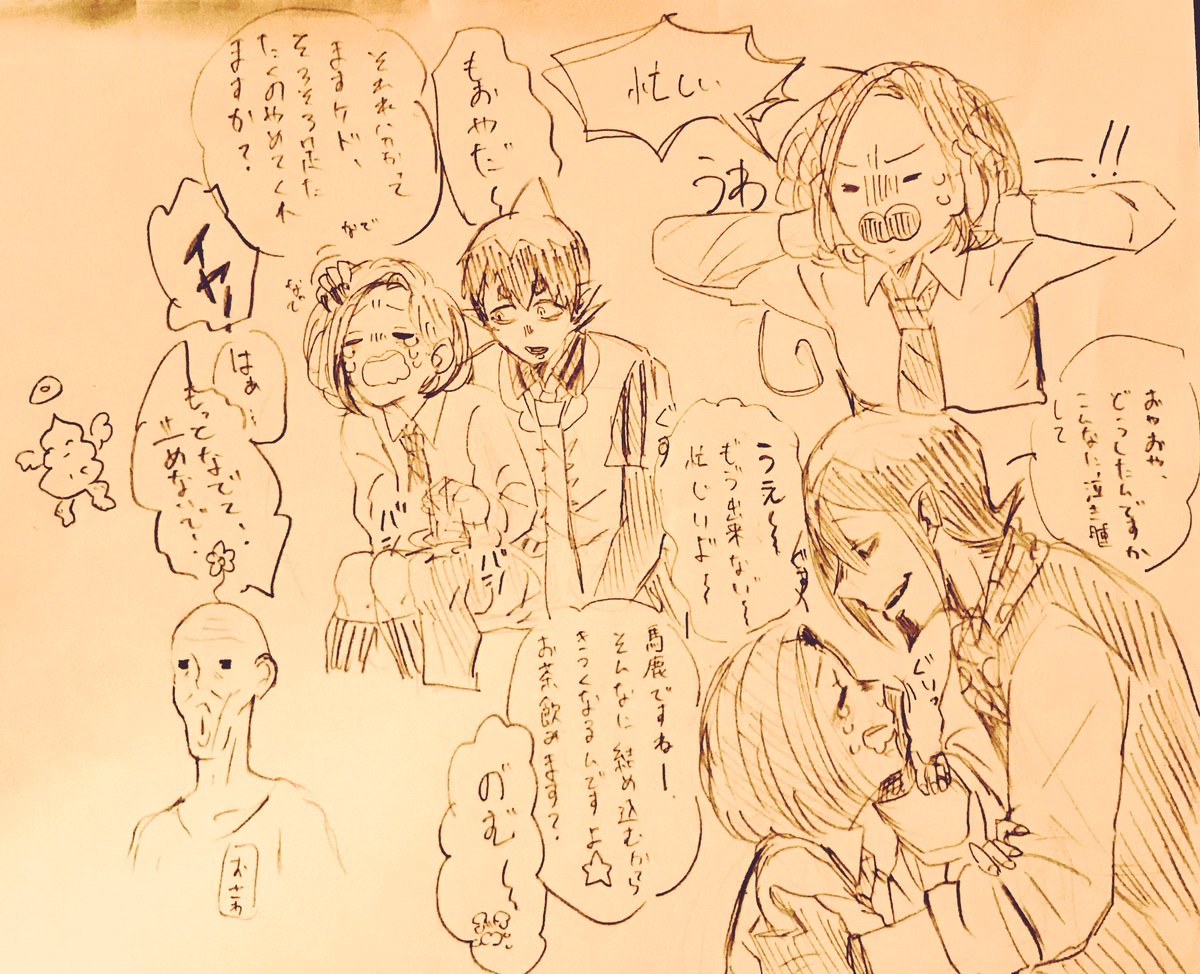 忙しい
うわ
!!
もおやだ〜
それわ分かって
ますケド、
そろそろ足た
たくのやめてくれ
ますか？
なで
なで
イヤー
はぁ…
もっとなでて、
止めないで…
バシ
バシ
おやおや、
どうしたんですか
こんなに泣き腫
して
うえ〜〜
もう出来ない〜
忙しいよ〜
ぐす
ぐす
ぐいっ
馬鹿ですねー、
そんなに結め込むから
きつくなるんですよ☆
お茶飲みます？
のむ〜〜
おさわ